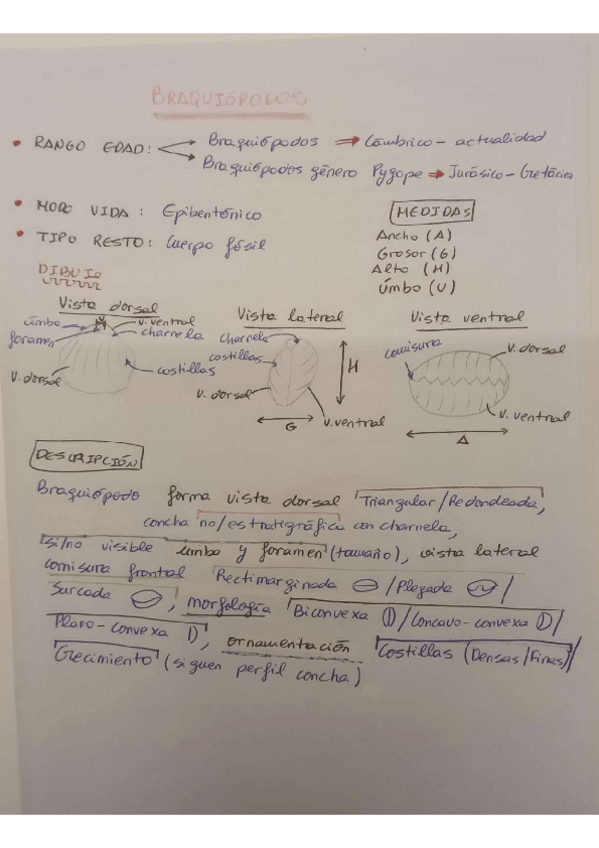 BRAQUIÓPODOS
• RANGO EDAD: Braquiópodos ⇒ Cámbrico - actualidad
Braquiópodos género Pygope → Jurásico - Cretácico
• MODO VIDA: Epibentónico
• TIPO RESTO: Cuerpo fósil
MEDIDAS
Ancho (A)
Grosor (G)
Alto (H)
Úmbo (U)
DIBUJO
Vista dorsal
úmbo
foramen
v. ventral
charnela
costillas
V. dorsal
Vista lateral
charnela
costillas
V. dorsal
V. ventral
H
G
Vista ventral
comisura
V. dorsal
V. ventral
A
DESCRIPCIÓN
Braquiópodo forma vista dorsal Triangular/Redondeada,
concha no/estratigráfica con charnela,
si/no visible umbo y foramen (tamaño), vista lateral
comisura frontal Rectimarginada / Plegada /
Surcada , morfología Biconvexa / Concavo-convexa /
Plano-convexa , ornamentación Costillas (Densas/Finas)/
Crecimiento (siguen perfil concha)